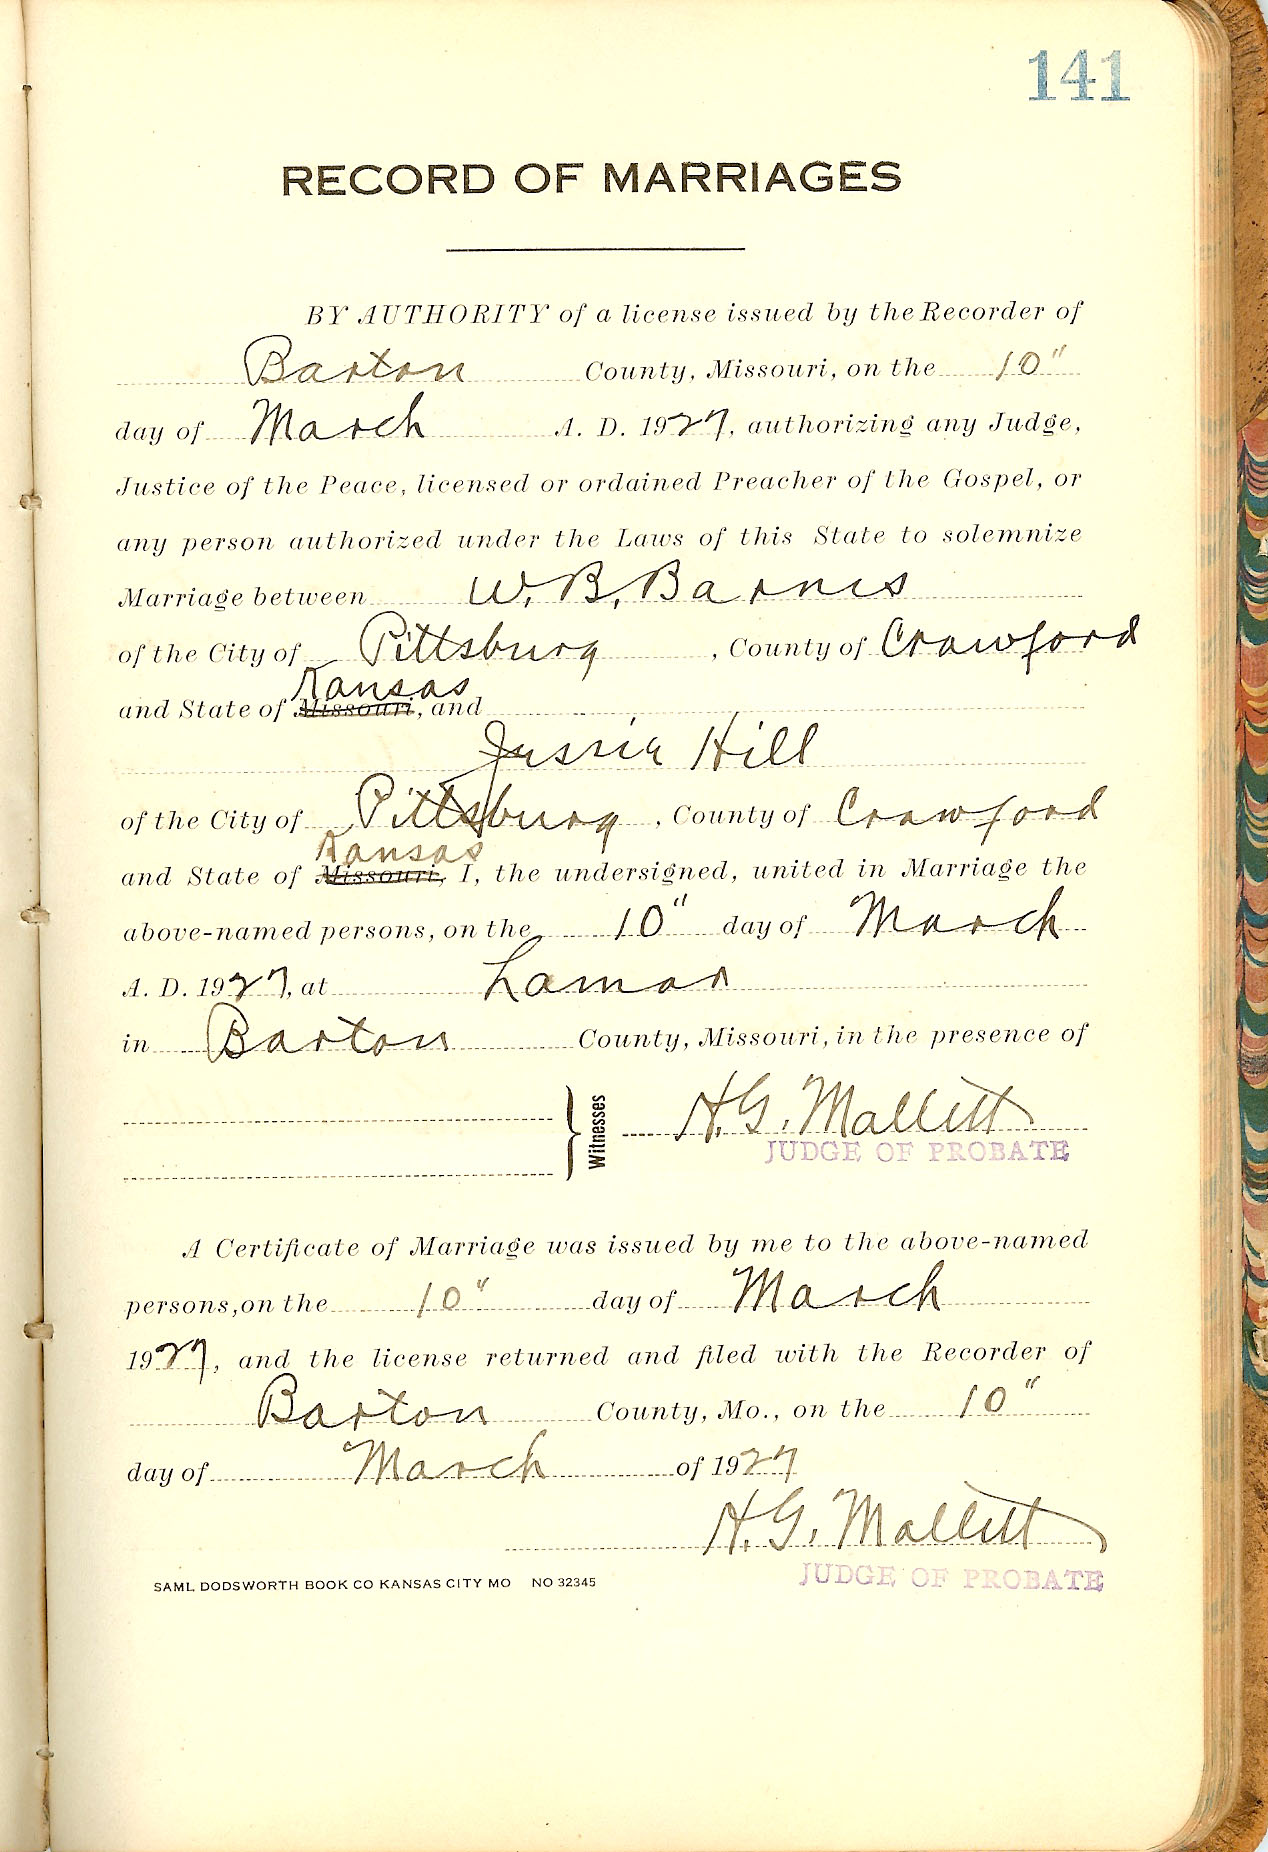 141
RECORD OF MARRIAGES
BY AUTHORITY of a license issued by the Recorder of
Barton County, Missouri, on the 10"
day of March A. D. 1927, authorizing any Judge,
Justice of the Peace, licensed or ordained Preacher of the Gospel, or
any person authorized under the Laws of this State to solemnize
Marriage between W. B. Barnes
of the City of Pittsburg, County of Crawford
Kansas
and State of Missouri, and
Jessie Hill
of the City of Pittsburg, County of Crawford
Kansas
and State of Missouri, I, the undersigned, united in Marriage the
above-named persons, on the 10" day of March
A. D. 1927, at Lamar
in Barton County, Missouri, in the presence of
Witnesses H. G. Mallett
JUDGE OF PROBATE
A Certificate of Marriage was issued by me to the above-named
persons, on the 10" day of March
1927, and the license returned and filed with the Recorder of
Barton County, Mo., on the 10"
day of March of 1927
H. G. Mallett
JUDGE OF PROBATE
SAML DODSWORTH BOOK CO KANSAS CITY MO NO 32345